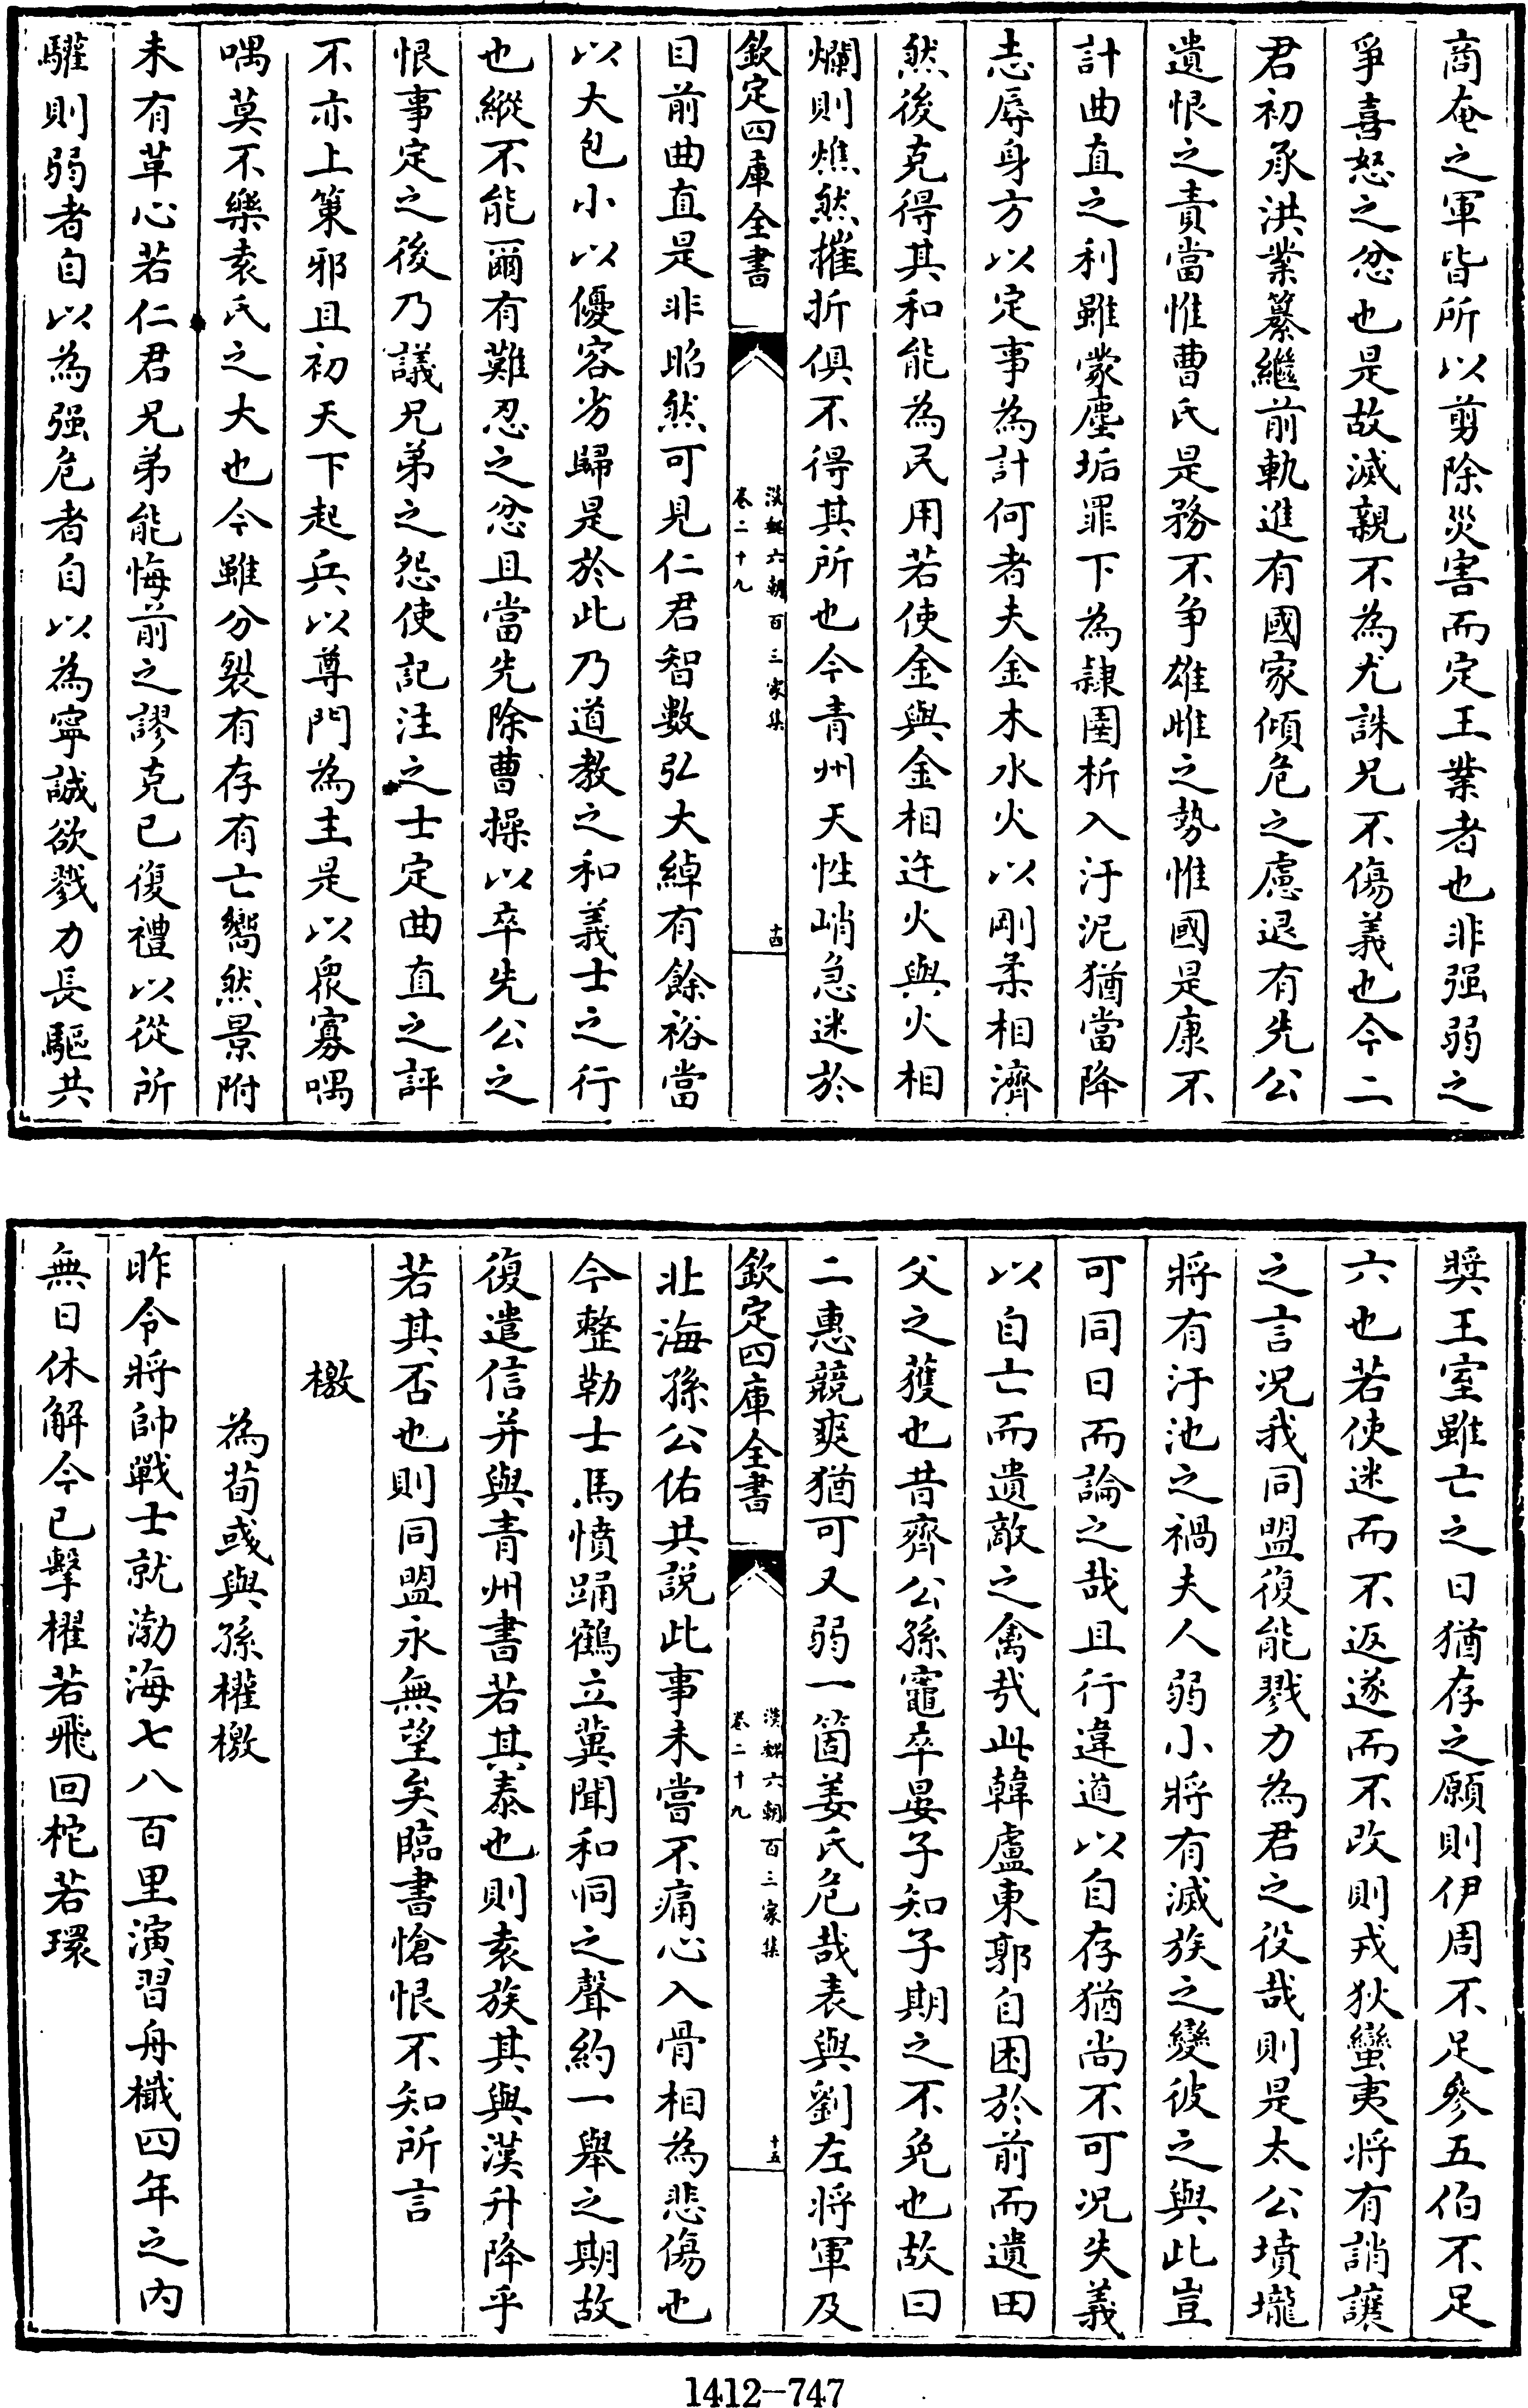 商奄之軍皆所以剪除災害而定王業者也非强弱之
爭喜怒之忿也是故滅親不為尤誅兄不傷義也今二
君初承洪業纂繼前軌進有國家傾危之慮退有先公
遺恨之責當惟曹氏是務不爭雄雌之勢惟國是康不
計曲直之利雖蒙塵垢罪下為隷圉析入汙泥猶當降
志辱身方以定事為計何者夫金木水火以剛柔相濟
然後克得其和能為民用若使金與金相迕火與火相
爛則燋然摧折俱不得其所也今青州天性峭急迷於
欽定四庫全書
漢魏六朝百三家集
卷二十九
十四
目前曲直是非昭然可見仁君智數弘大綽有餘裕當
以大包小以優容劣歸是於此乃道教之和義士之行
也縱不能爾有難忍之忿且當先除曹操以卒先公之
恨事定之後乃議兄弟之怨使記注之士定曲直之評
不亦上策邪且初天下起兵以尊門為主是以衆寡喁
喁莫不樂袁氏之大也今雖分裂有存有亡嚮然景附
未有革心若仁君兄弟能悔前之謬克已復禮以從所
驩則弱者自以為强危者自以為寧誠欲戮力長驅共
奬王室雖亡之日猶存之願則伊周不足參五伯不足
六也若使迷而不返遂而不改則戎狄蠻夷將有誚讓
之言况我同盟復能戮力為君之役哉則是太公墳壠
將有汙池之禍夫人弱小將有滅族之變彼之與此豈
可同日而論之哉且行違道以自存猶尚不可况失義
以自亡而遺敵之禽哉此韓盧東郭自困於前而遺田
父之獲也昔齊公孫竈卒晏子知子期之不免也故曰
二惠競爽猶可又弱一箇姜氏危哉表與劉左將軍及
欽定四庫全書
漢魏六朝百三家集
卷二十九
十五
北海孫公佑共説此事未嘗不痛心入骨相為悲傷也
今整勒士馬憤踊鶴立冀聞和同之聲約一舉之期故
復遣信并與青州書若其泰也則袁族其與漢升降乎
若其否也則同盟永無望矣臨書愴恨不知所言
檄
為荀彧與孫權檄
昨令將帥戰士就渤海七八百里演習舟檝四年之内
無日休解今已擊櫂若飛回柁若環
1412-747